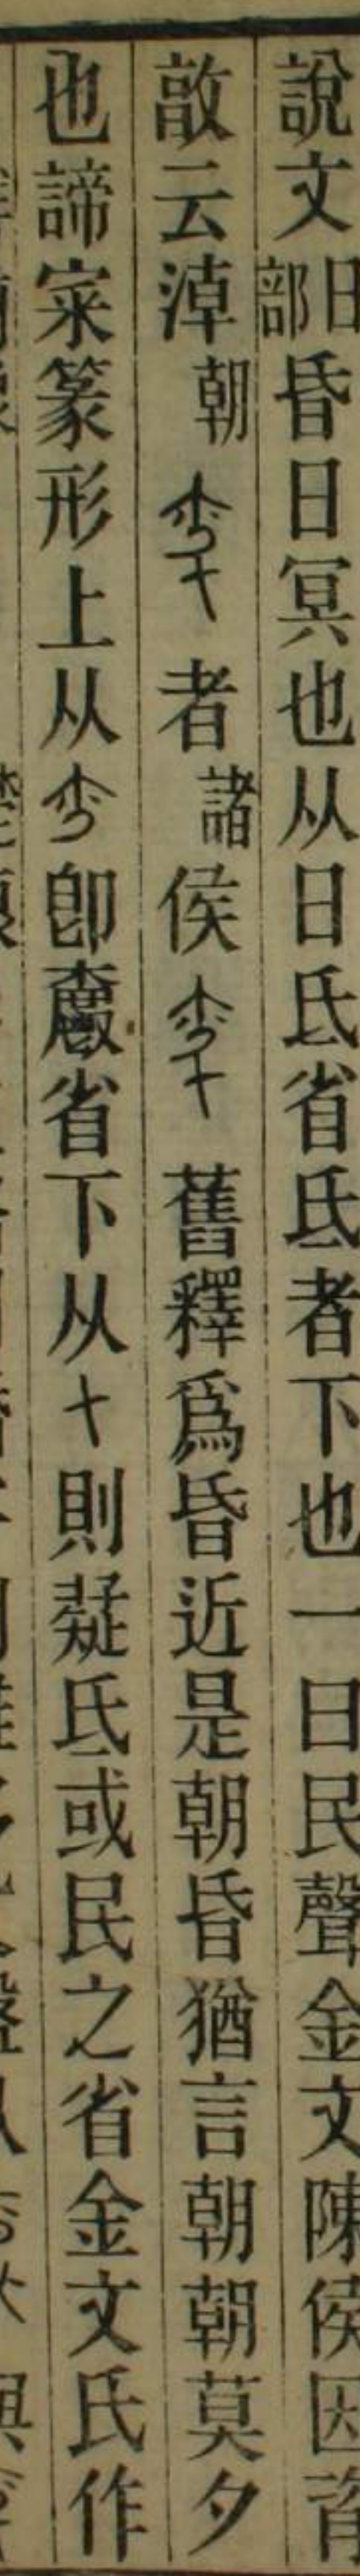 說文日部昏日冥也从日氐省氐者下也一曰民聲金文陳侯因𦣞
敦云淖朝者諸侯舊釋爲昏近是朝昏猶言朝朝莫夕
也諦宷篆形上从卽省下从則疑氐或民之省金文氏作